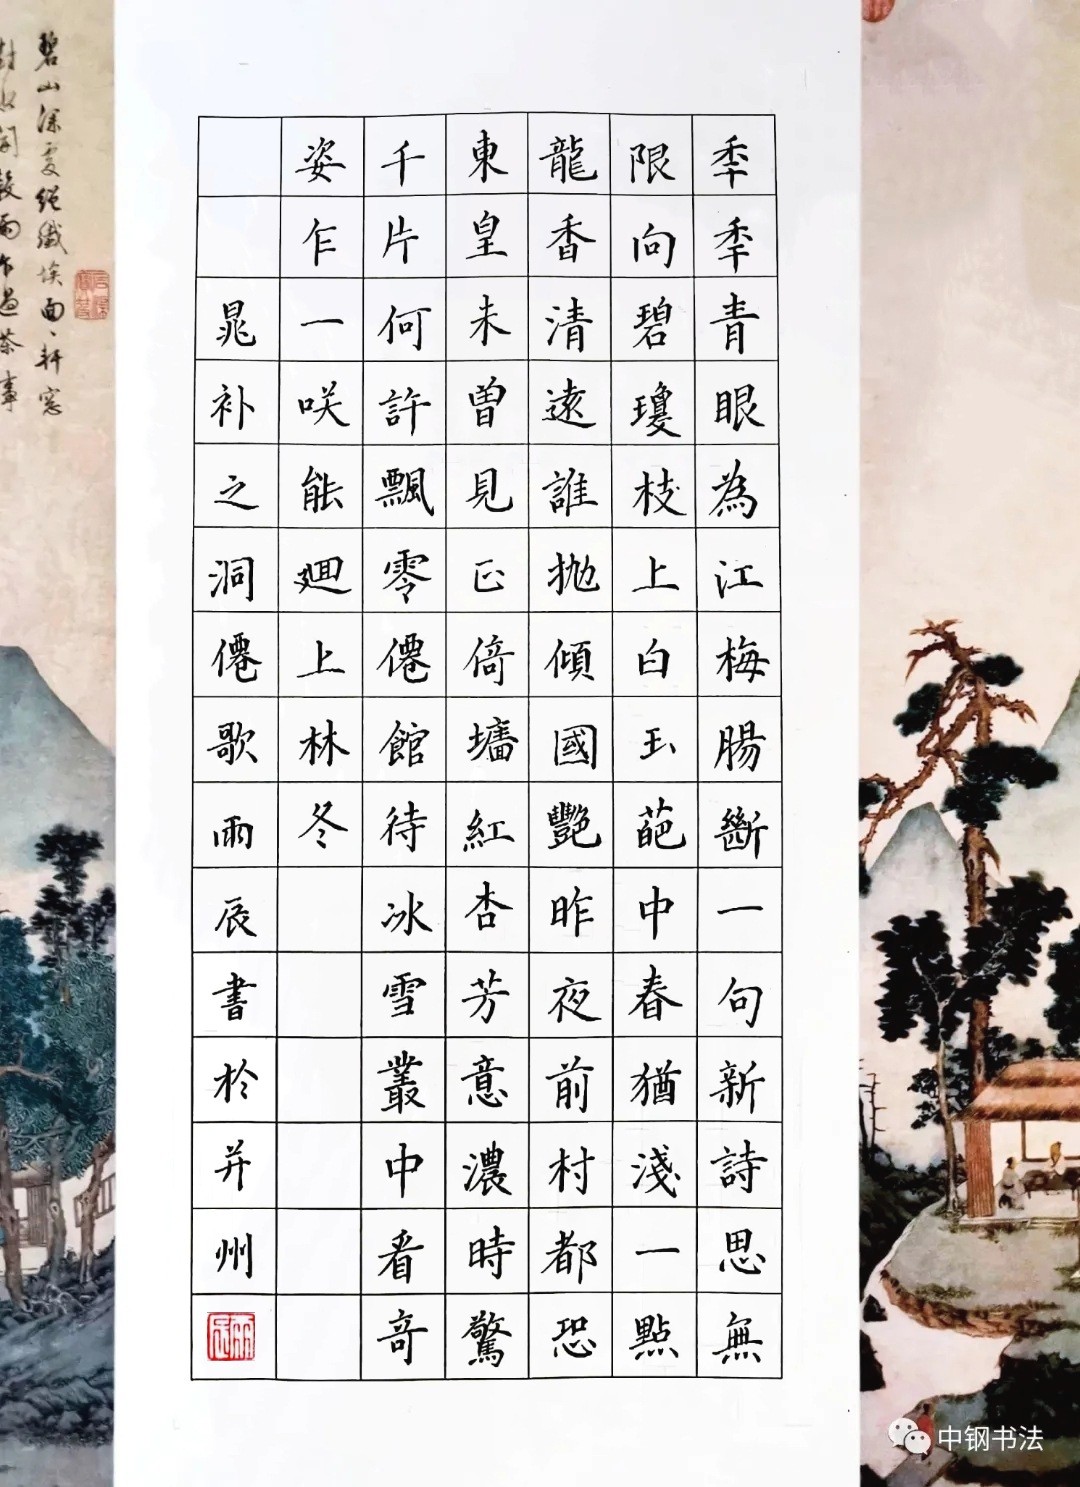 秊秊青眼為江梅腸斷一句新詩思無
限向碧瓊枝上白玉葩中春猶淺一點
龍香清遠誰拋傾國艷昨夜前村都恐
東皇未曾見正倚墻紅杏芳意濃時驚
千片何許飄零僊館待冰雪叢中看奇
姿乍一咲能廻上林冬
晁补之洞僊歌雨辰書於并州
雨辰
碧山深處絕纖埃面〻軒窓
對水開穀雨乍過茶事
中钢书法